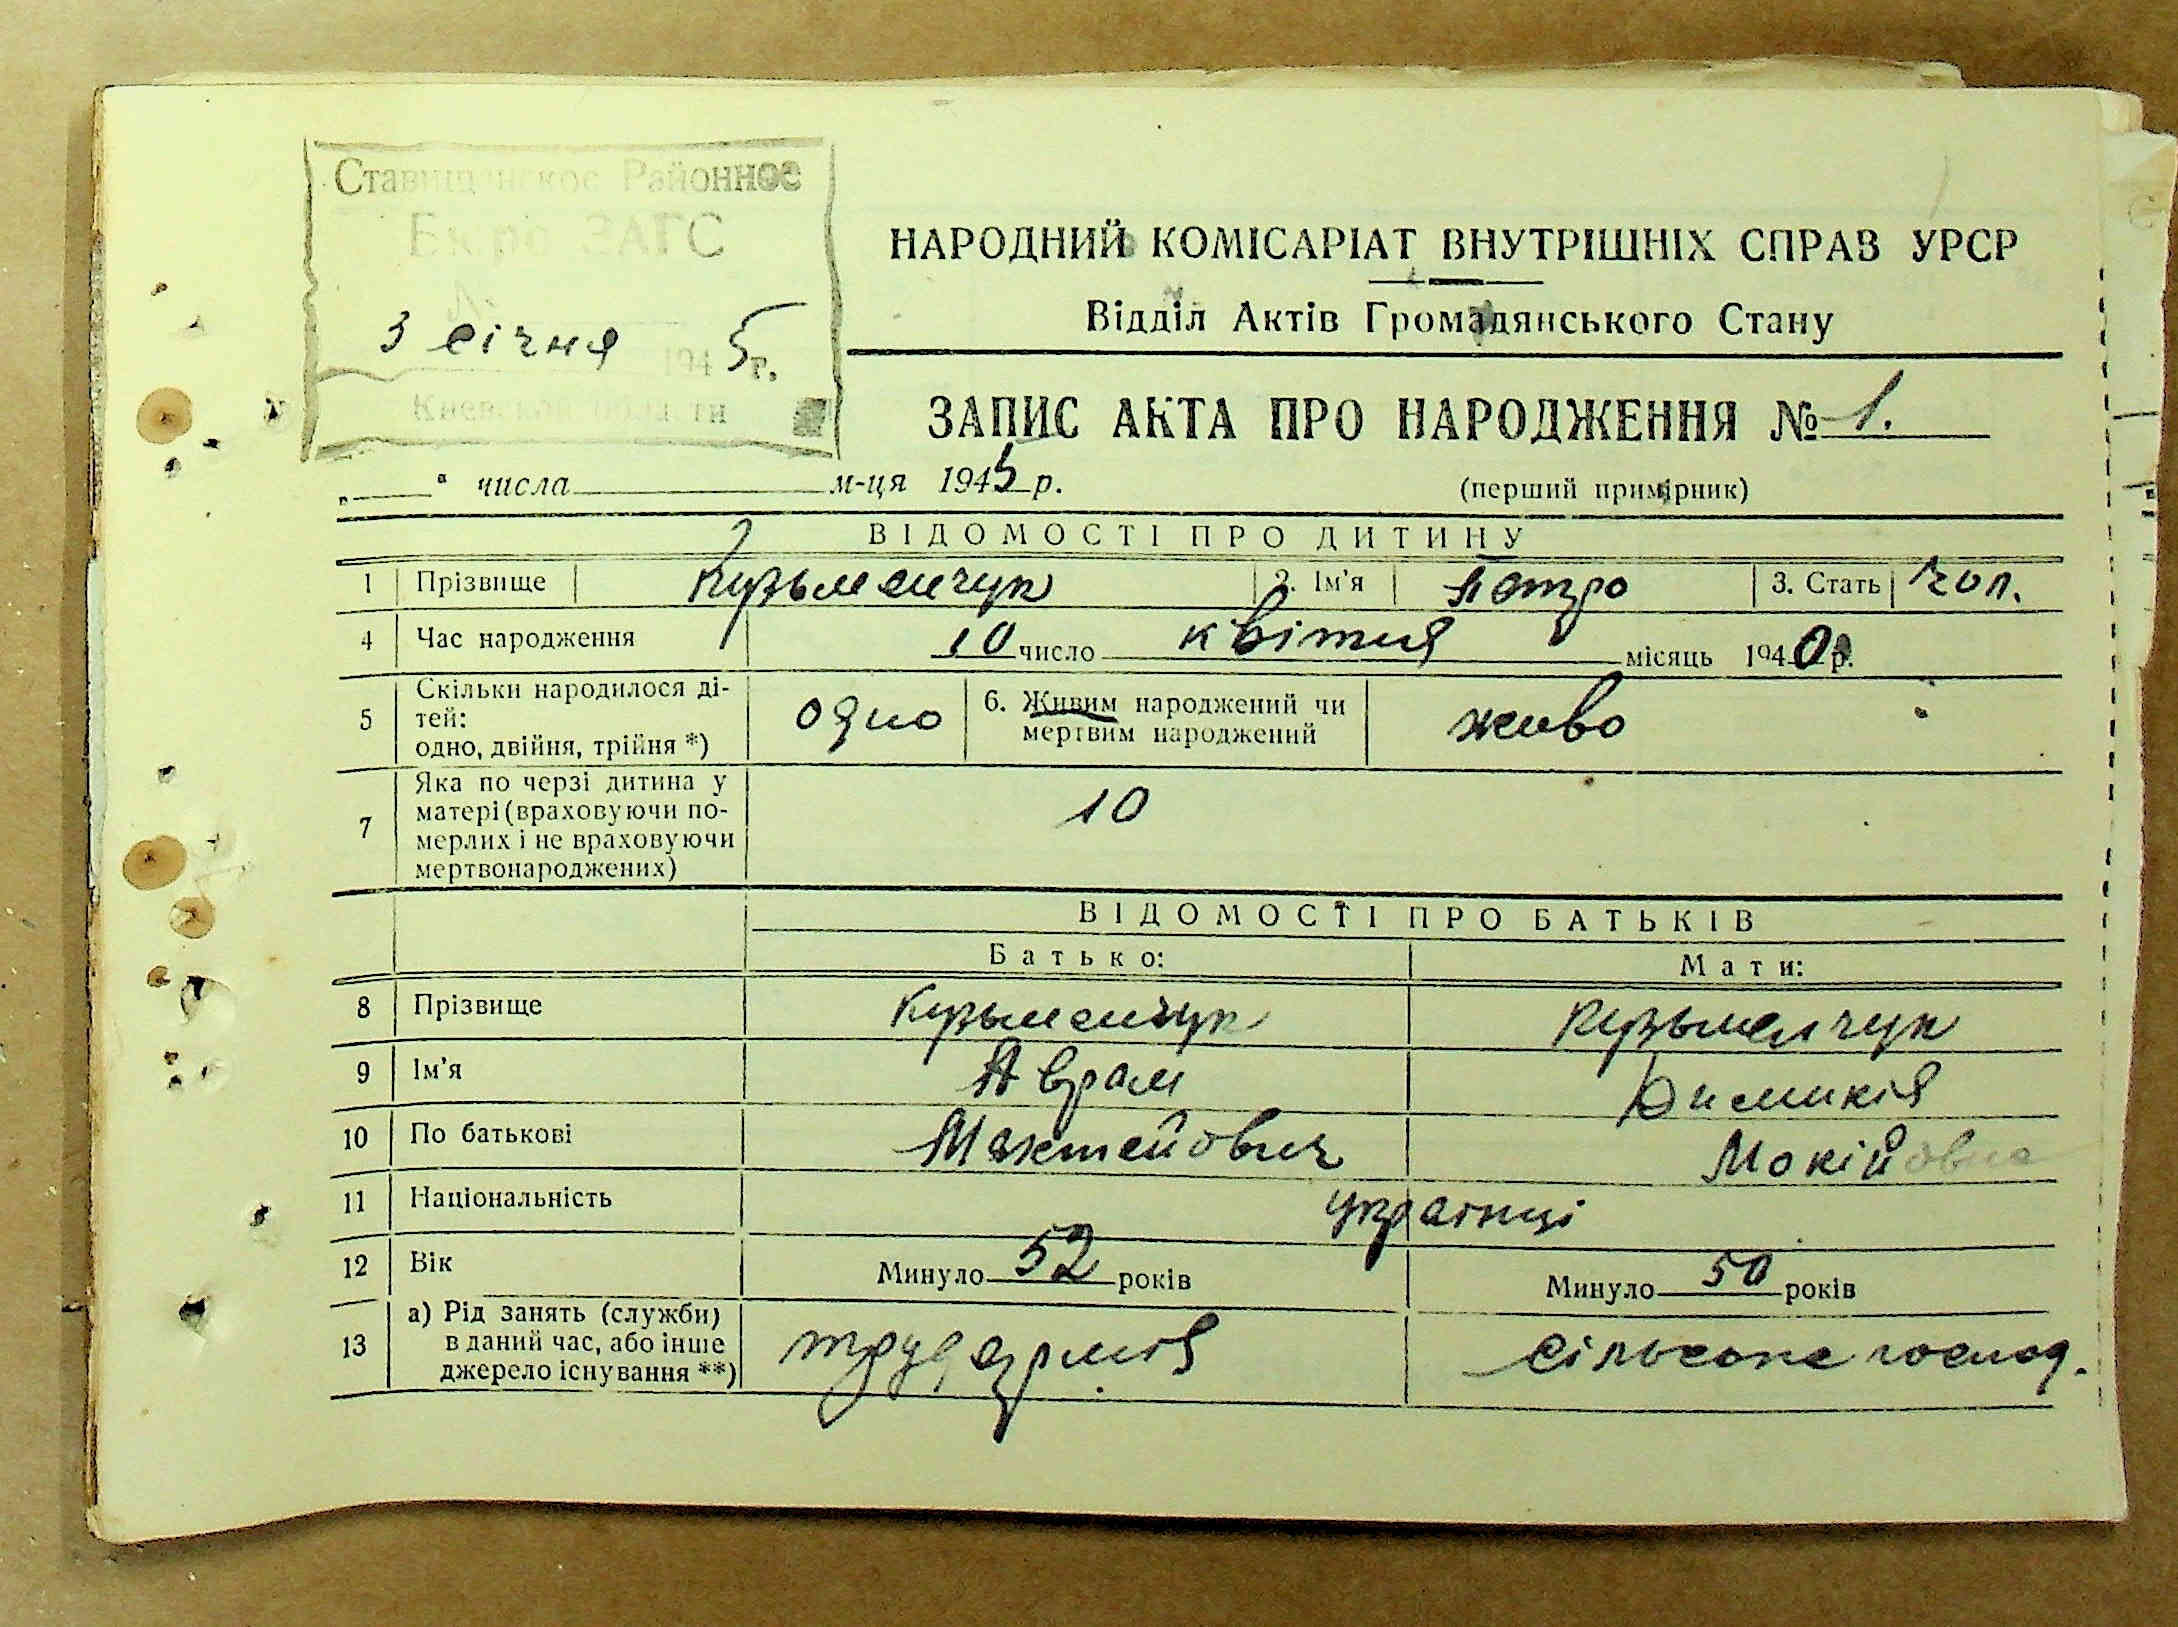 Ставищенское Районное
Бюро ЗАГС
№
3 січня 1945 г.
Киевской области
НАРОДНИЙ КОМІСАРІАТ ВНУТРІШНІХ СПРАВ УРСР
Відділ Актів Громадянського Стану
ЗАПИС АКТА ПРО НАРОДЖЕННЯ № 1.
„____“ числа ____ м-ця 1945 р. (перший примірник)
ВІДОМОСТІ ПРО ДИТИНУ
1 Прізвище Кузьменчук 2. Ім'я Петро 3. Стать чол.
4 Час народження 10 число квітня місяць 1940 р.
5 Скільки народилося ді-
тей:
одно, двійня, трійня *) одно 6. Живим народжений чи
мертвим народжений живо
7 Яка по черзі дитина у
матері (враховуючи по-
мерлих і не враховуючи
мертвонароджених) 10
ВІДОМОСТІ ПРО БАТЬКІВ
Батько: Мати:
8 Прізвище Кузьменчук Кузьменчук
9 Ім'я Аврам
10 По батькові Мокійовна
11 Національність українці
12 Вік Минуло 52 років Минуло 50 років
13 а) Рід занять (служби)
в даний час, або інше
джерело існування **) сільське господ.